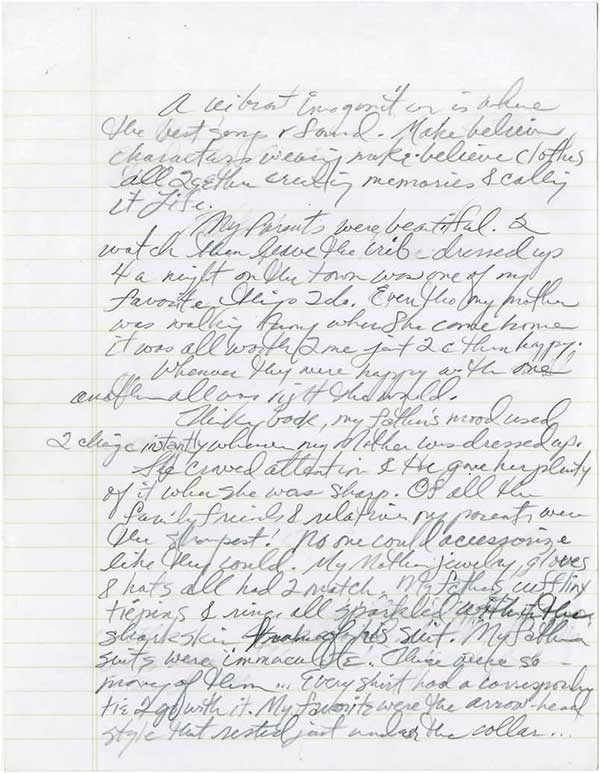 A vibrant imagination is where
the best songs r found. Make believe
characters wearing make-believe clothes
all 2gether creating memories & calling
it Life.
My Parents were beautiful. 2
watch them leave the crib dressed up
4 a night on the town was one of my
favorite things 2 do. Even tho my mother
was walking funny when she come home
it was all worth 2 me just 2 c them happy.
Whenever they were happy with one
another all was right the world.
Thinking back, my father's mood used
2 change instantly whenever my Mother was dressed up.
She craved attention & He gave her plenty
of it when she was sharp. Of all the
family friends & relatives my parents were
the sharpest! No one could accessorize
like they could. My Mother's jewelry, gloves
& hats all had 2 match. My father's cufflinx
tiepins & rings all sparkled with the
sharkskin his suit. My father's
suits were immaculate. There were so
many of them... Every shirt had a corresponding
tie 2 go with it. My favorite were the arrow-head
style that rested just under the collar...